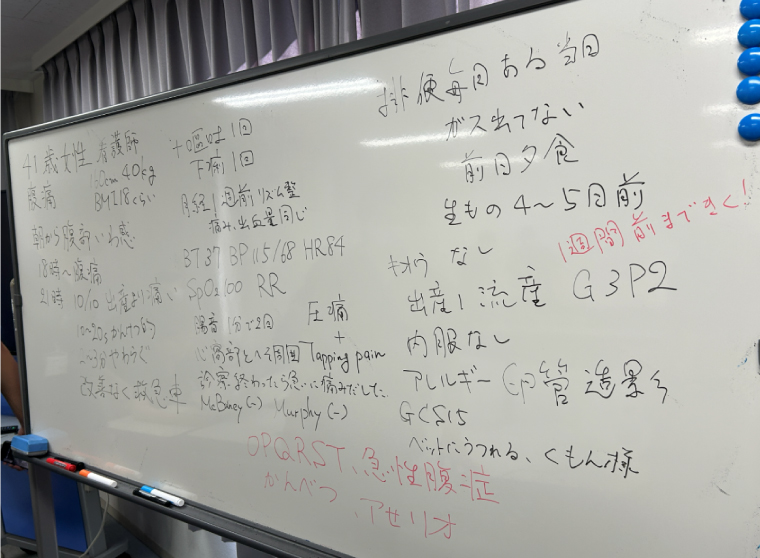 41歳女性 看護師
160cm 40kg
腹痛 BMI18くらい
朝から腹部いわ感
18時〜腹痛
21時 10/10 出産より痛い
10〜20sかんけつ的
2〜3分やわらぐ
改善なく救急車
嘔吐1回
下痢1回
月経1週前リズム整
痛み、出血量同じ
BT 37 BP 115/68 HR84
SpO2 100 RR
腸音1分で2回 圧痛
心窩部とへそ周囲 + Tapping pain
診察終わったら急に痛みだした
McBurney(-) Murphy(-)
排便毎日ある 当日
ガス出てない
前日夕食
生もの4〜5日前
1週間前まできく!
キオウ なし
出産1 流産 G3P2
内服なし
アレルギー 造影
GCS15
ベットにうつれる、くもん様
OPQRST、急性腹症
かんべつ、アセリオ